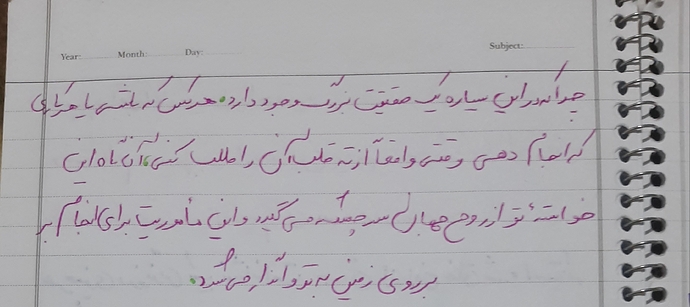 Year: Month: Day: Subject:
چرا که در این سیاره یک حقیقت بزرگ وجود دارد. هرکس که باشی یا هرکاری
که انجام دهی وقتی واقعاً از ته قلب آن را طلب کنی، آنگاه این
خواسته تو از روح جهان سرچشمه می گیرد و این مأموریت برای انجام بر
بر روی زمین به تو واگذار می شود.